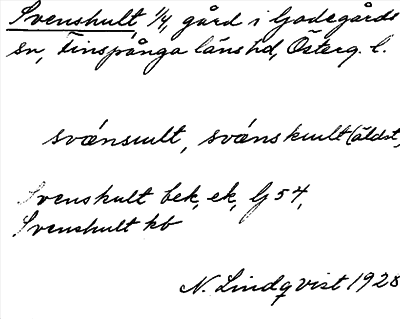 Svenshult, 1/4, gård i Godegårds
sn, Finspånga läns hd, Österg. l.
svénsult, svánskult (äldst,
Svenshult bek, ek, G 54,
Svenshult kb
N. Lindqvist 1928